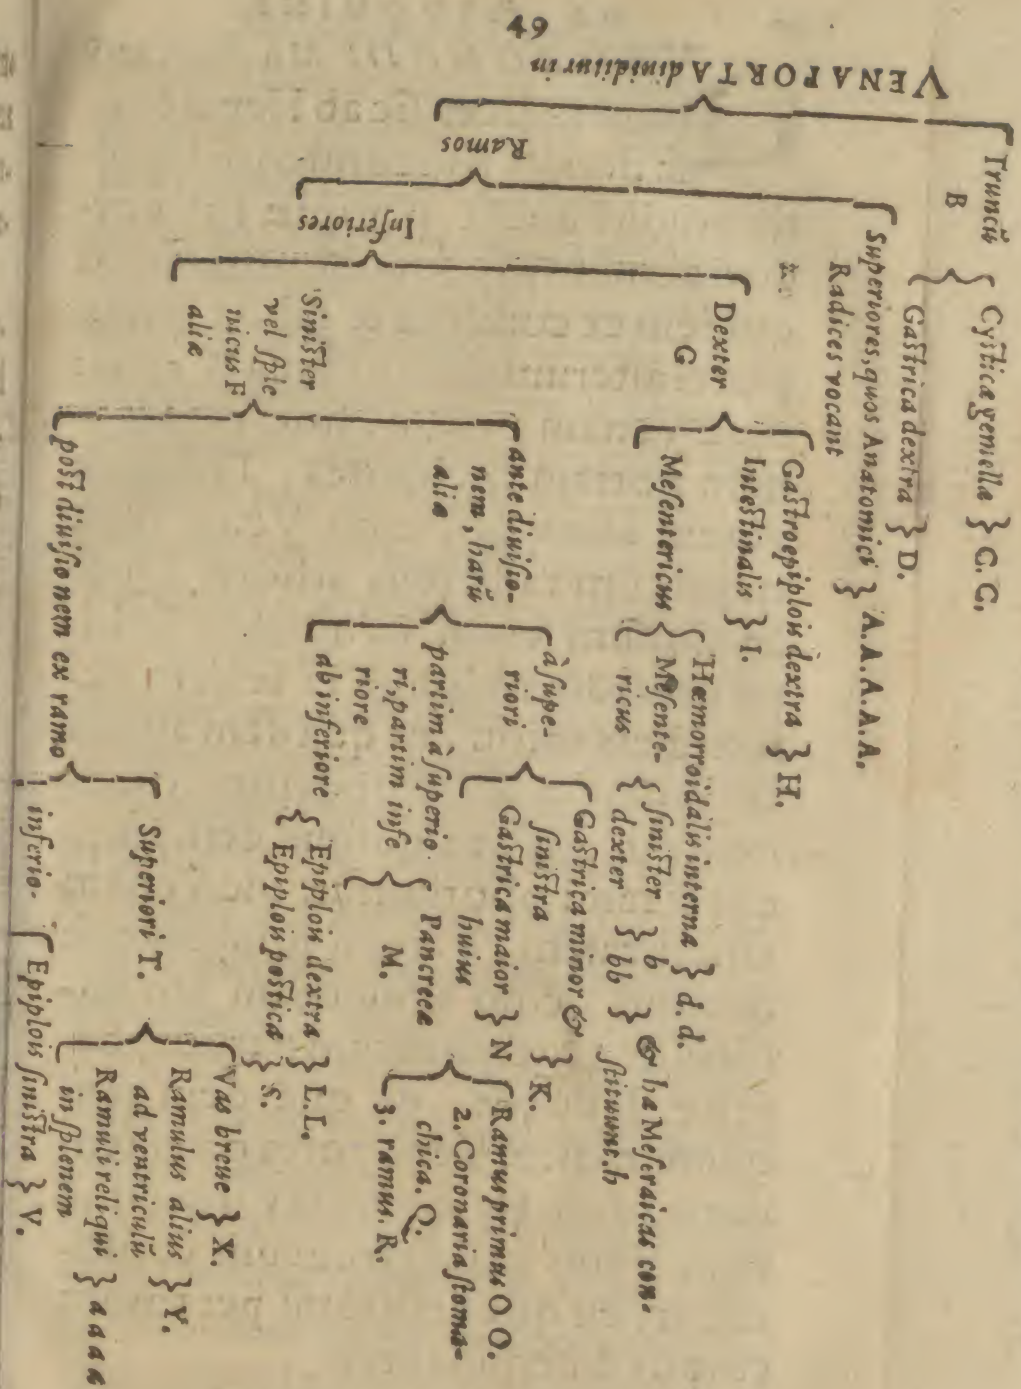 49
VENA PORTA diuiditur in
Truncũ
B
Cysticæ gemellæ } C. C.
Gastrica dextra } D.
Ramos
Superiores, quos Anatomici
Radices vocant } A. A. A. A. A.
Inferiores
Dexter
G
Gastroepiplois dextra } H.
Intestinalis } I.
Mesentericus
Hæmorroidalis interna } d. d.
Mesente-
ricus
sinister } b
dexter } bb
& hæ Meseraicas con-
stituunt. h
Sinister
vel sple
nicus F
aliæ
ante diuisio-
nem, harũ
aliæ
à supe-
riori
Gastrica minor &
sinistra } K.
Gastrica maior } N
huius
Ramus primus O O.
2. Coronaria stoma-
chica. Q.
3. ramus. R.
partim à superio
ri, partim infe
riore
Pancreeæ
M.
ab inferiore
Epiplois dextra } L. L.
Epiplois postica } S.
post diuisionem ex ramo
Superiori T.
Vas breue } X.
Ramulus alius
ad ventriculũ } Y.
Ramuli reliqui
in splenem } a a a a
inferio-
Epiplois sinistra } V.